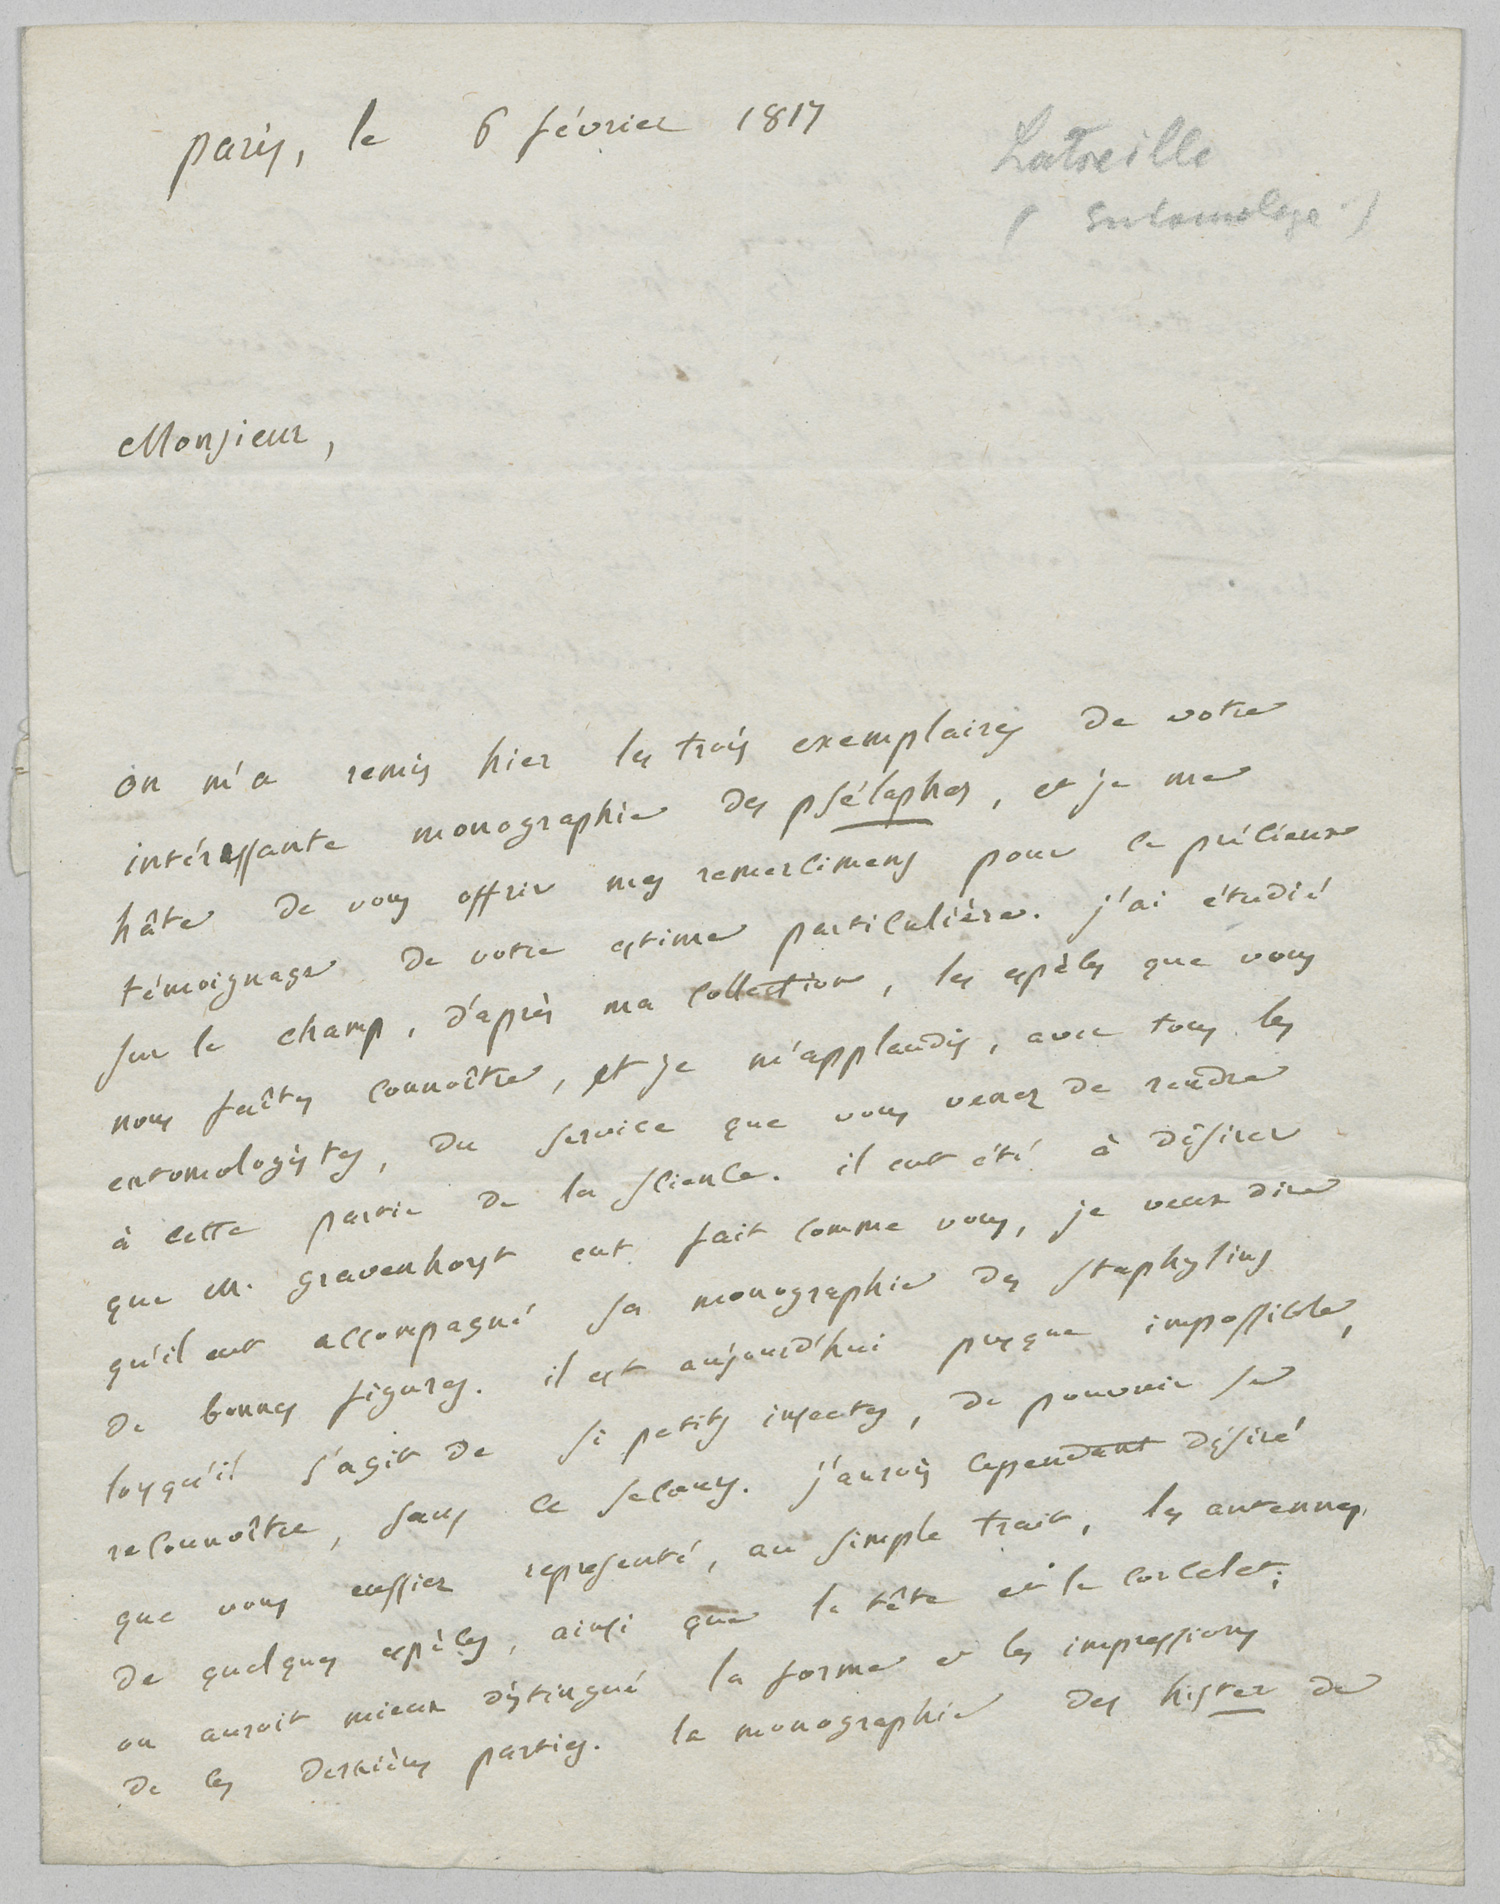 paris, le 6 février 1817
Latreille
( Entomologe )
Monsieur,
on m'a remis hier les trois exemplaires de votre
intéressante monographie des psélaphes, et je me
hâte de vous offrir mes remercimens pour ce précieux
témoignage de votre estime particulière. j'ai étudié
sur le champ, d'après ma collection, les espèces que vous
nous faîtes connoître, et je m'applaudis, avec tous les
entomologistes, du service que vous venez de rendre
à cette partie de la science. il eut été à désirer
que M. gravenhorst eut fait comme vous, je veux dire
qu'il eut accompagné sa monographie des staphylins
de bonnes figures. il est aujourd'hui presque impossible,
lorsqu'il s'agit de si petits insectes, de pouvoir se
reconnoître, sans ce secours. j'aurois cependant désiré
que vous eussiez représenté, au simple trait, les antennes
de quelques espèces, ainsi que la tête et le corcelet;
on auroit mieux distingué la forme et les impressions
de ces dernières parties. la monographie des hister de